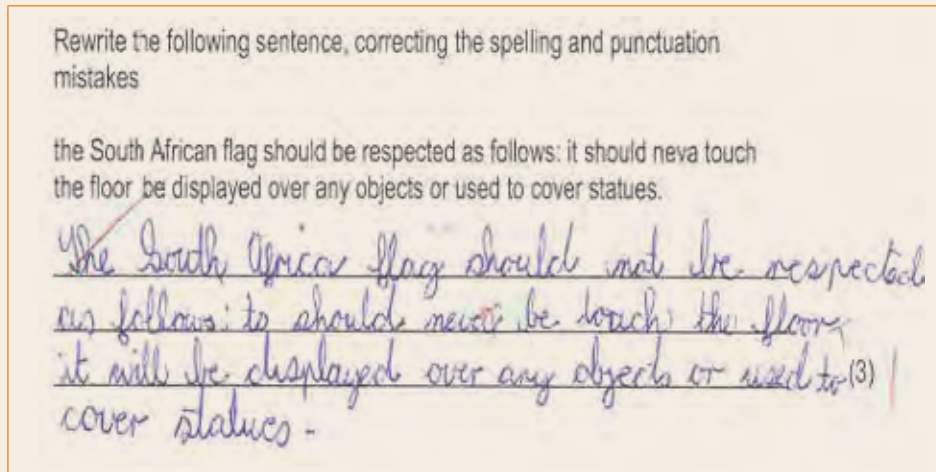 Rewrite the following sentence, correcting the spelling and punctuation
mistakes
the South African flag should be respected as follows: it should neva touch
the floor be displayed over any objects or used to cover statues.
The South Africa flag should not be respected
as follows: to should never be touch the floor,
it will be displayed over any objects or used to (3)
cover statues.